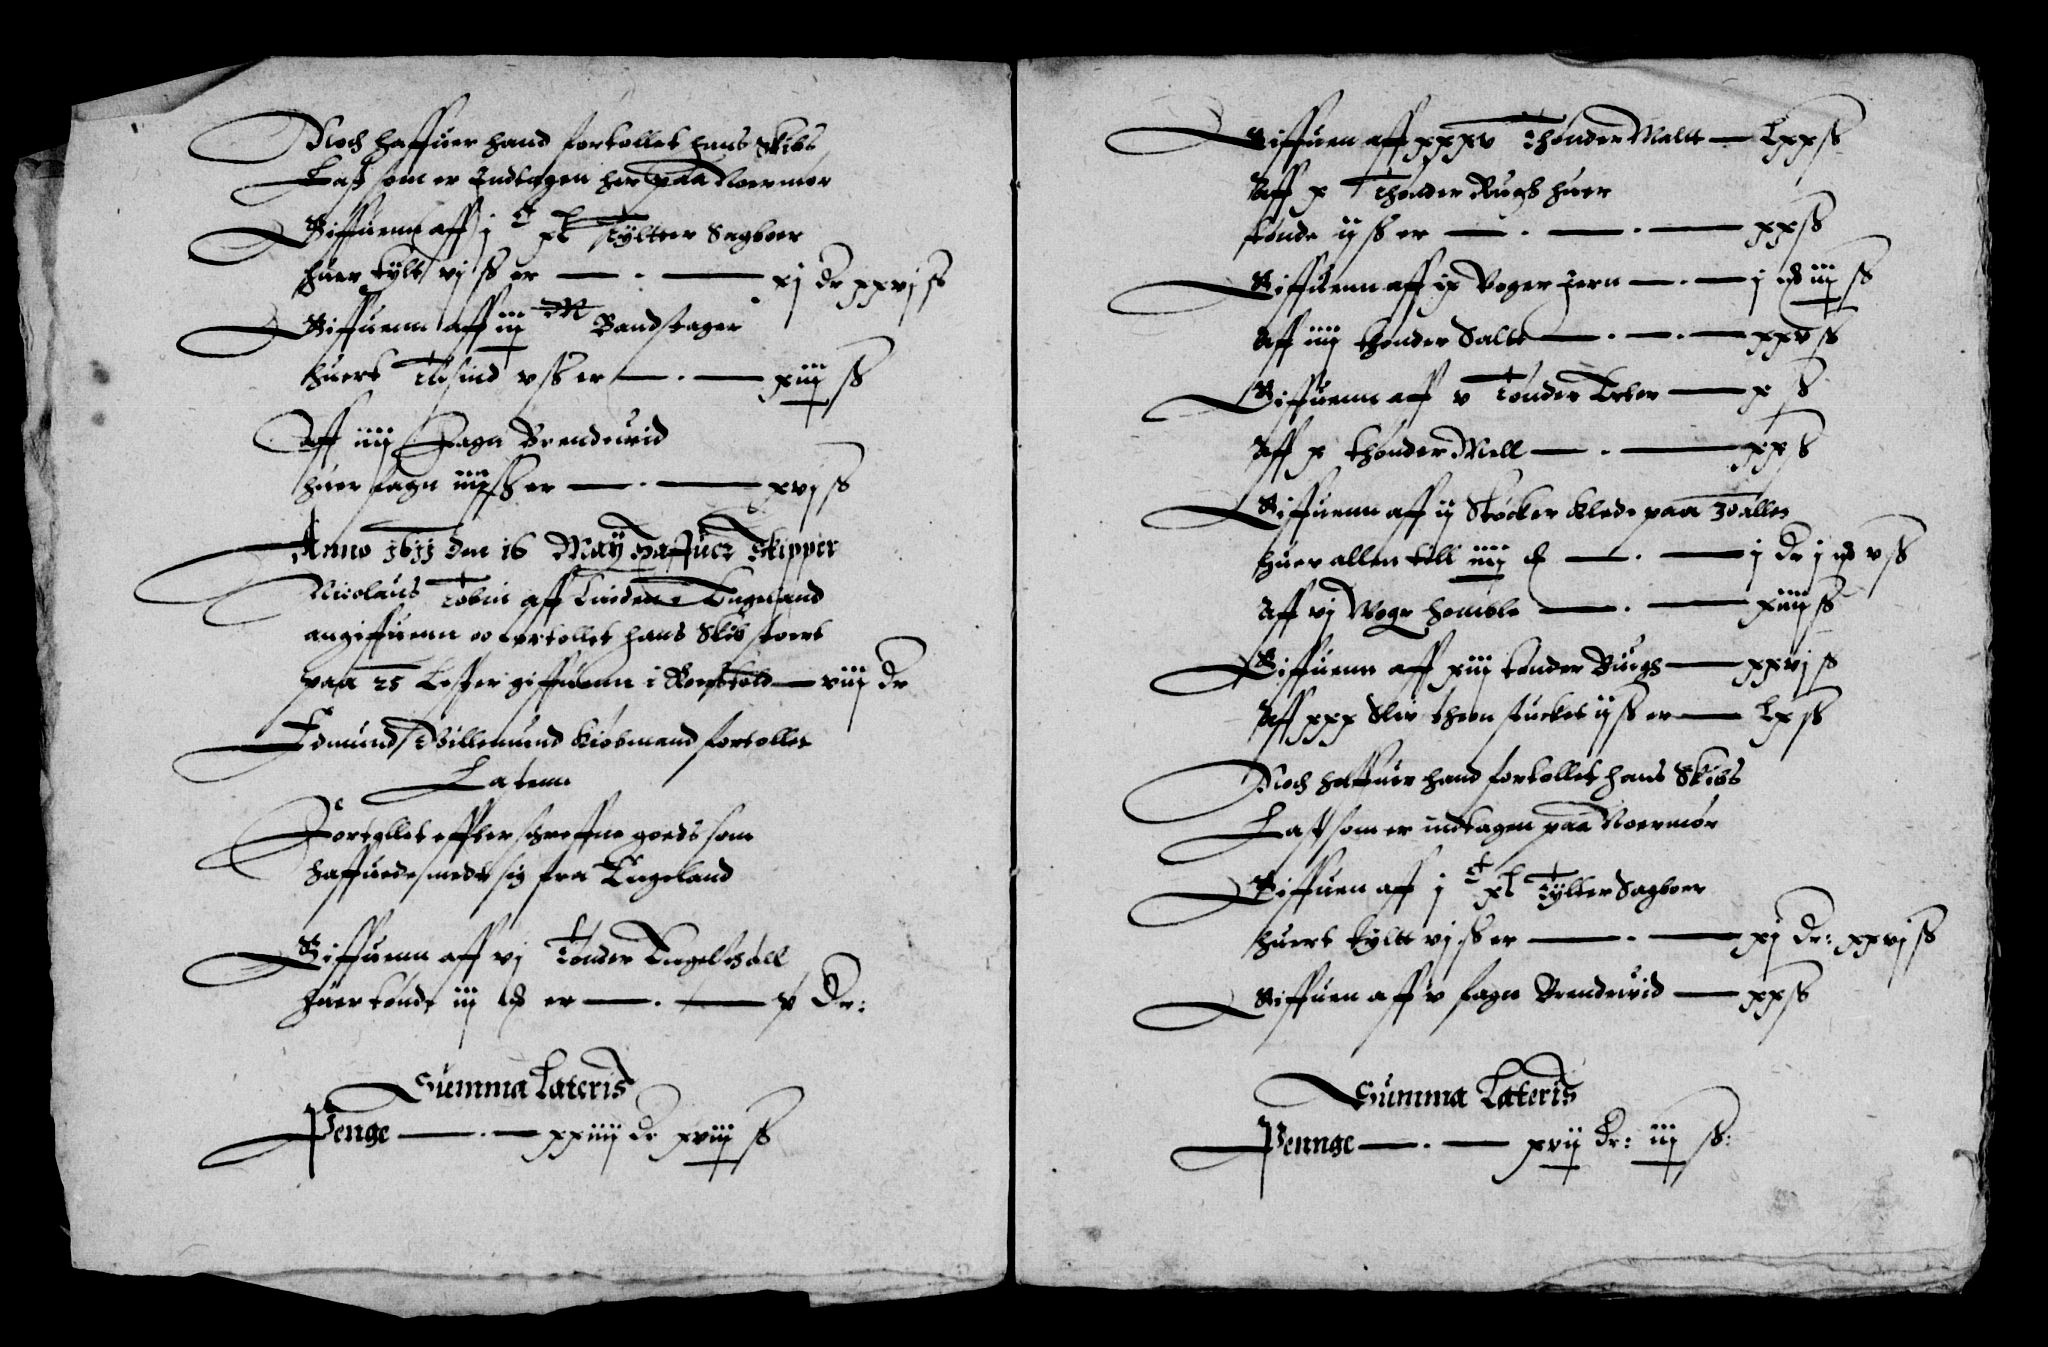 Noch haffuer hand fortollet hans Skibs
Last som er Indtagen her paa Noermør
Giffuenn aff j c xl Tÿltter Sagboer
huer tÿlt vj ß er — . — xj dr xxvj ß
Giffuenn aff iij M Bandstager
huert Tusind v ß er — . — xiiij ß
Aff iiij Fagn Brendeuid
huer fagn iiij ß er — . — xvj ß
Anno 1611 den 16 Maÿ Haffuer Skipper
Nicolaus Tobin aff Linden i Engeland
angiffuenn oc fortollet hans Skib stoert
paa 25 Lester giffuenn i Roertold — viij dr
Edmund Villemund kiøbmand fortollet
Latenn
Fortollet effter schreffne goeds som
haffuede medt sig fra Engeland
Giffuenn aff vj Tønder Engelsk
huer tønde iij er — . — v dr:
Summa Lateris
Penge — . — xxiiij dr xviij ß
Giffuen aff xxxv Thønder Maltt — Lxx ß
Aff x Thønder Rugh huer
tønde ij ß er — . — . — xx ß
Giffuenn aff ix Voger Jern — . — j iij ß
Aff iiij thønder Salt — . — . — xxv ß
Giffuenn aff v Tønder Erter — x ß
Aff x thønder Mell — . — xx ß
Giffuenn aff ij Støcker klede paa 30 allen
huer allen till iiij — . — j dr j v ß
Aff vj Wogr homble — . — xiiij ß
Giffuenn aff xiij tønder Bÿgh — xxvj ß
Aff xxx stucket ij ß er — Lx ß
Noch haffuer hand fortollet hans Skibs
Last som er indtagen paa Noermør
Giffuen aff j c xl Tÿltter Sagboer
huert tÿltt vj ß er — . — xj dr: xxvj ß
Giffuen aff v fagn Brendeuid — xx ß
Summa Lateris
Pennge — . — xvij dr: iij ß: